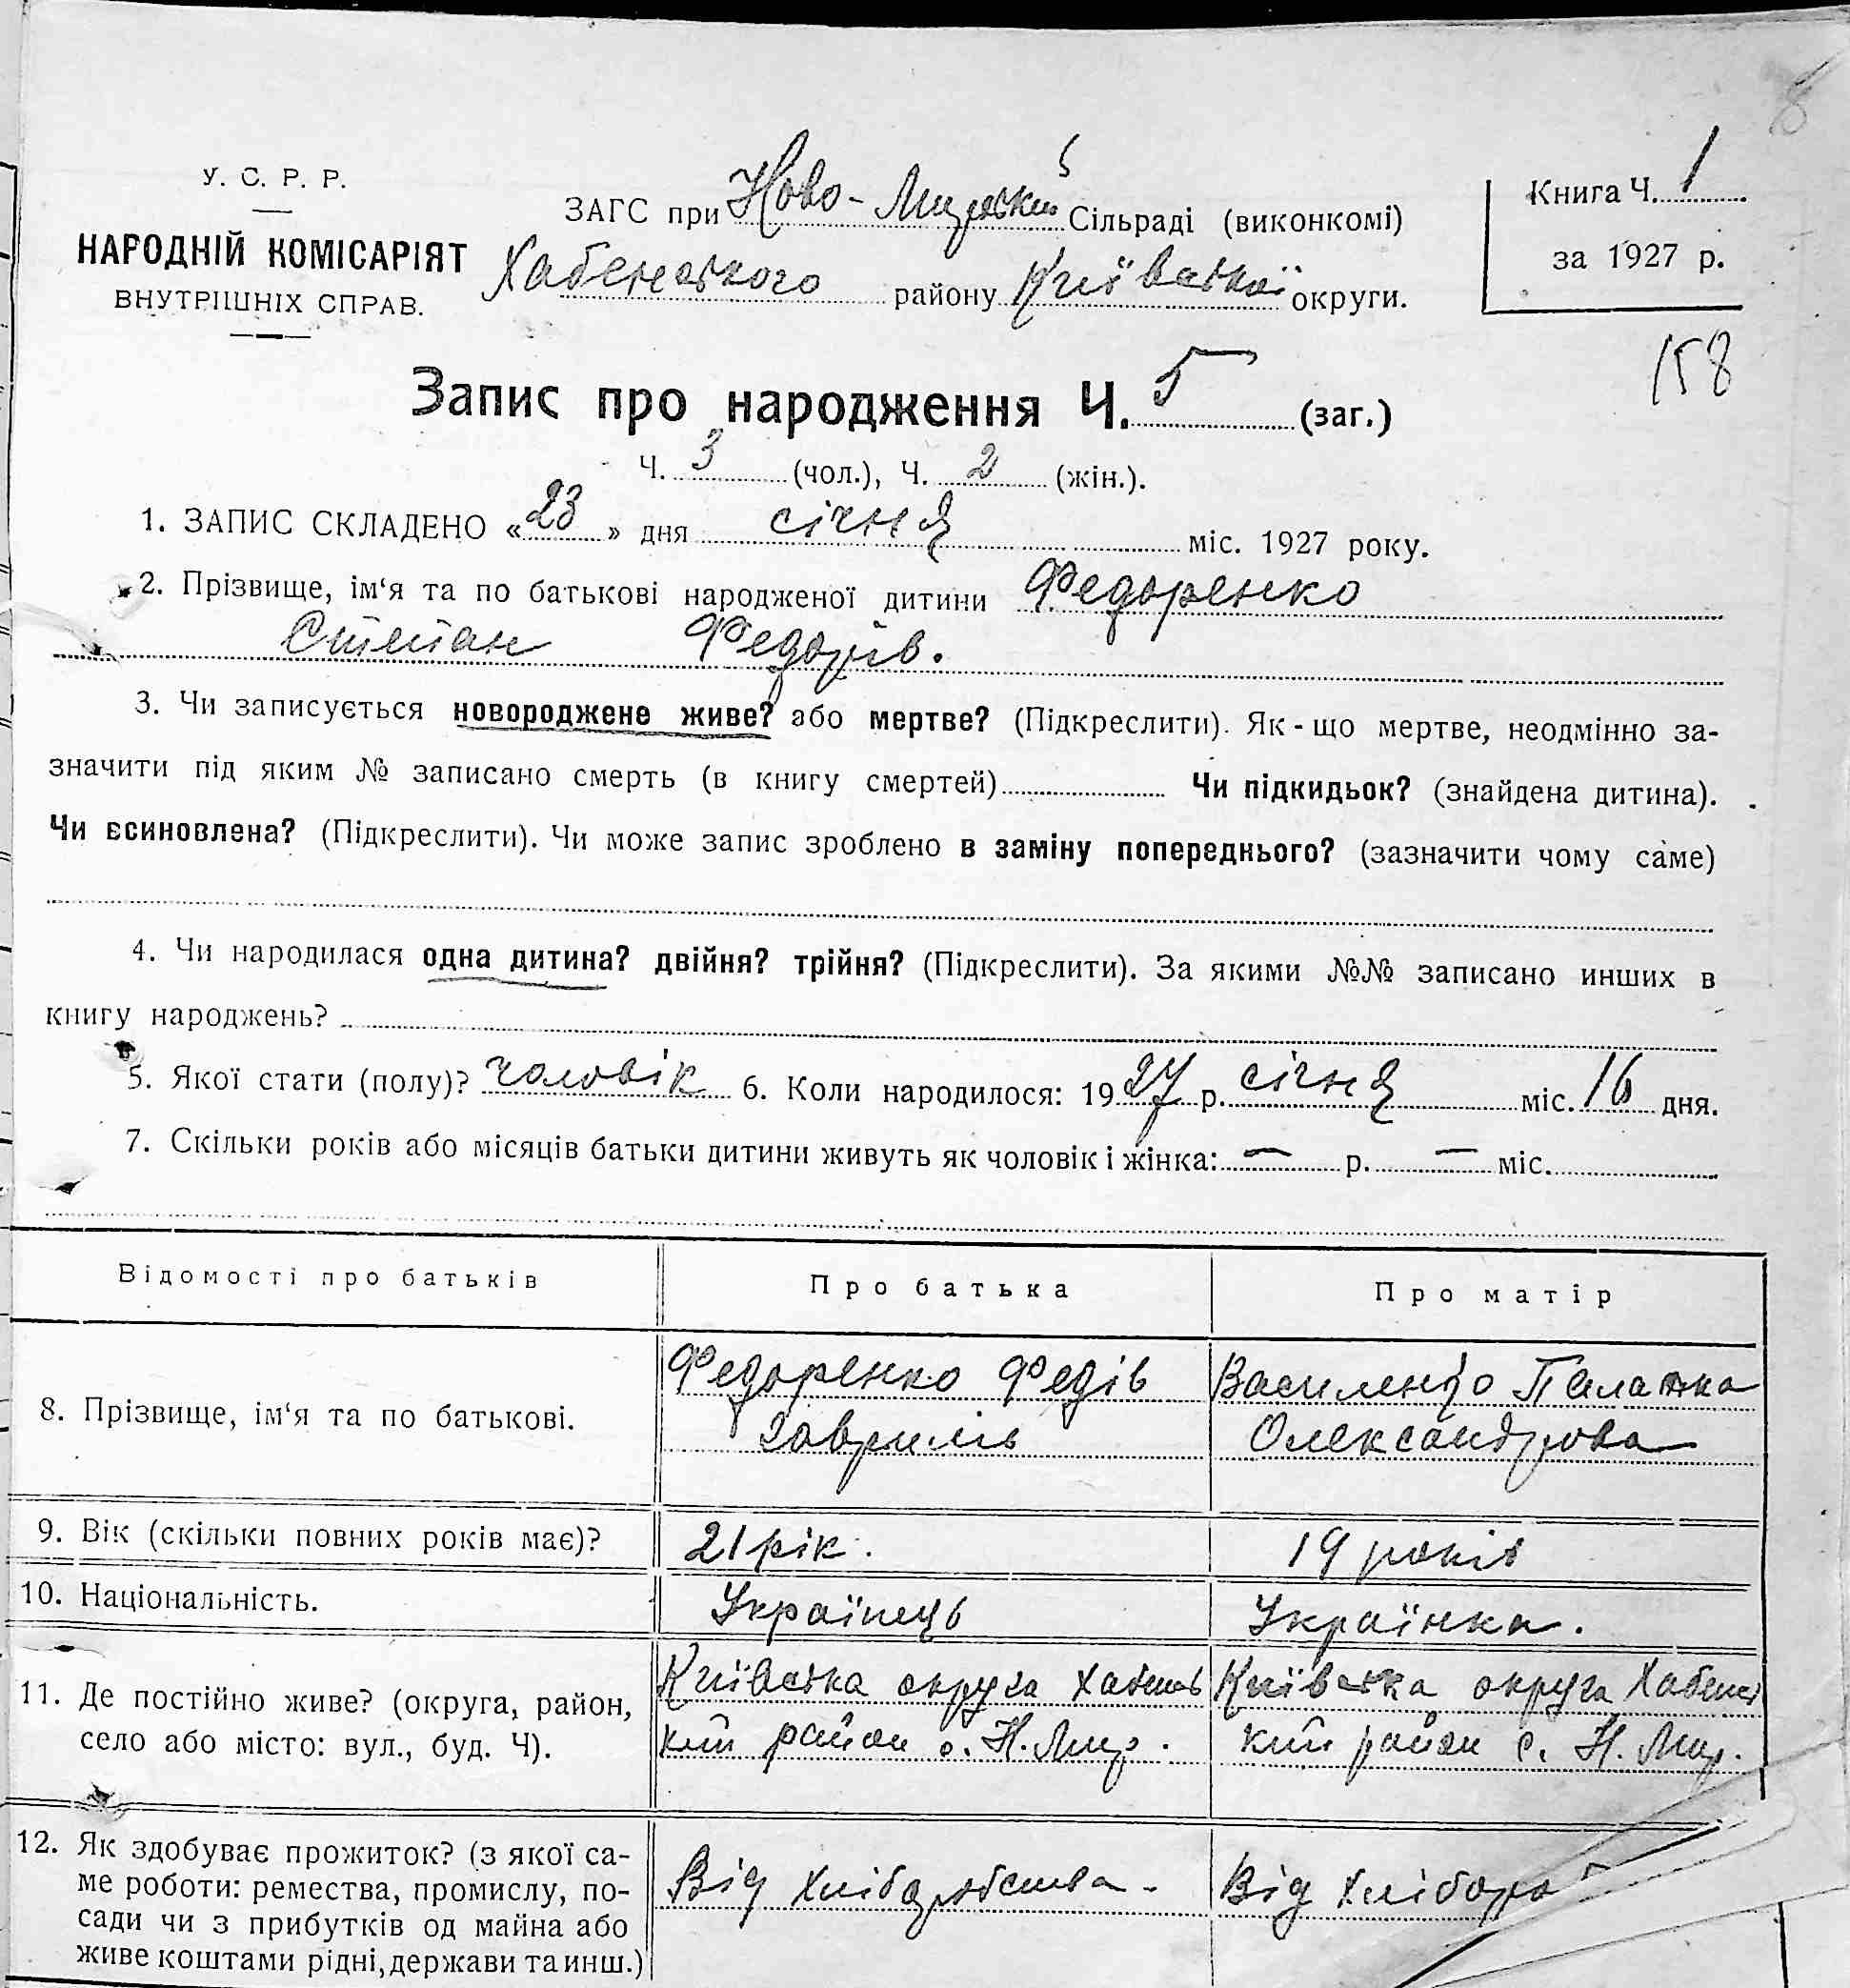 8
У. С. Р. Р.
НАРОДНІЙ КОМІСАРІЯТ
ВНУТРІШНІХ СПРАВ.
ЗАГС при Ново-Мирський Сільраді (виконкомі)
Хабенського району Київської округи.
Книга Ч. 1
за 1927 р.
158
Запис про народження Ч. 5 (заг.)
Ч. 3 (чол.), Ч. 2 (жін.).
1. ЗАПИС СКЛАДЕНО «23» дня січня міс. 1927 року.
2. Прізвище, ім‘я та по батькові народженої дитини Федоренко
Степан Федорів.
3. Чи записується новороджене живе? або мертве? (Підкреслити). Як-що мертве, неодмінно за-
значити під яким № записано смерть (в книгу смертей) Чи підкидьок? (знайдена дитина).
Чи всиновлена? (Підкреслити). Чи може запис зроблено в заміну попереднього? (зазначити чому саме)
4. Чи народилася одна дитина? двійня? трійня? (Підкреслити). За якими №№ записано инших в
книгу народжень?
5. Якої стати (полу)? чоловік 6. Коли народилося: 1927 р. січня міс. 16 дня.
7. Скільки років або місяців батьки дитини живуть як чоловік і жінка: — р. — міс.
Відомості про батьків
Про батька
Про матір
8. Прізвище, ім‘я та по батькові.
Федоренко Федів
Гаврилів
Василенко Палажка
Олександрова
9. Вік (скільки повних років має)?
21 рік.
19 років
10. Національність.
Українець
Українка.
11. Де постійно живе? (округа, район,
село або місто: вул., буд. Ч).
Київська округа Хабенсь
кий район с. Н. Мир.
Київська округа Хабенсь
кий район с. Н. Мир.
12. Як здобуває прожиток? (з якої са-
ме роботи: ремества, промислу, по-
сади чи з прибутків од майна або
живе коштами рідні, держави та инш.)
Від хліборобства-
Від хліборо